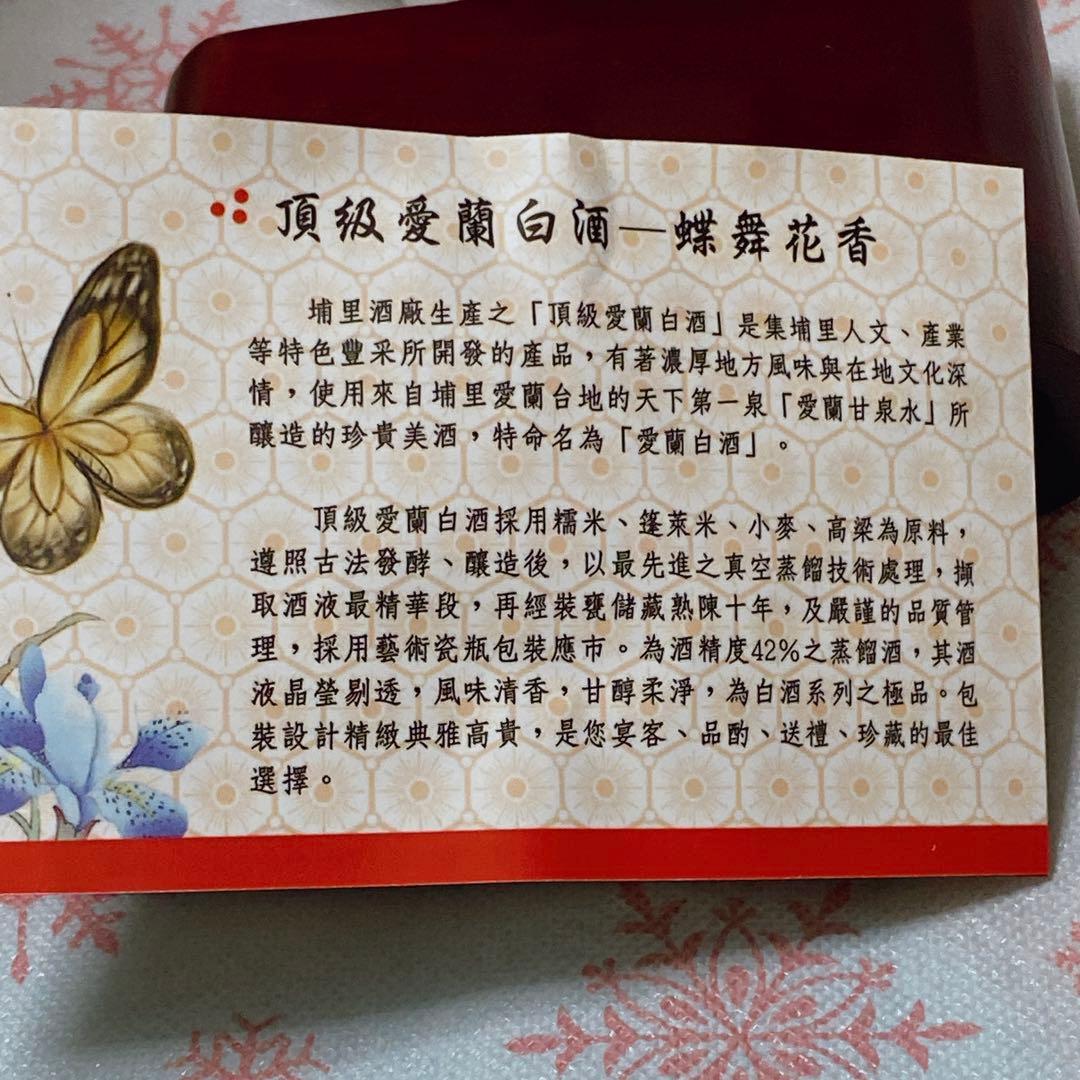 頂級愛蘭白酒—蝶舞花香
埔里酒廠生產之「頂級愛蘭白酒」是集埔里人文、產業
等特色豐采所開發的產品，有著濃厚地方風味與在地文化深
情，使用來自埔里愛蘭台地的天下第一泉「愛蘭甘泉水」所
釀造的珍貴美酒，特命名為「愛蘭白酒」。
頂級愛蘭白酒採用糯米、蓬萊米、小麥、高梁為原料，
遵照古法發酵、釀造後，以最先進之真空蒸餾技術處理，擷
取酒液最精華段，再經裝甕儲藏熟陳十年，及嚴謹的品質管
理，採用藝術瓷瓶包裝應市。為酒精度42%之蒸餾酒，其酒
液晶瑩剔透，風味清香，甘醇柔淨，為白酒系列之極品。包
裝設計精緻典雅高貴，是您宴客、品酌、送禮、珍藏的最佳
選擇。